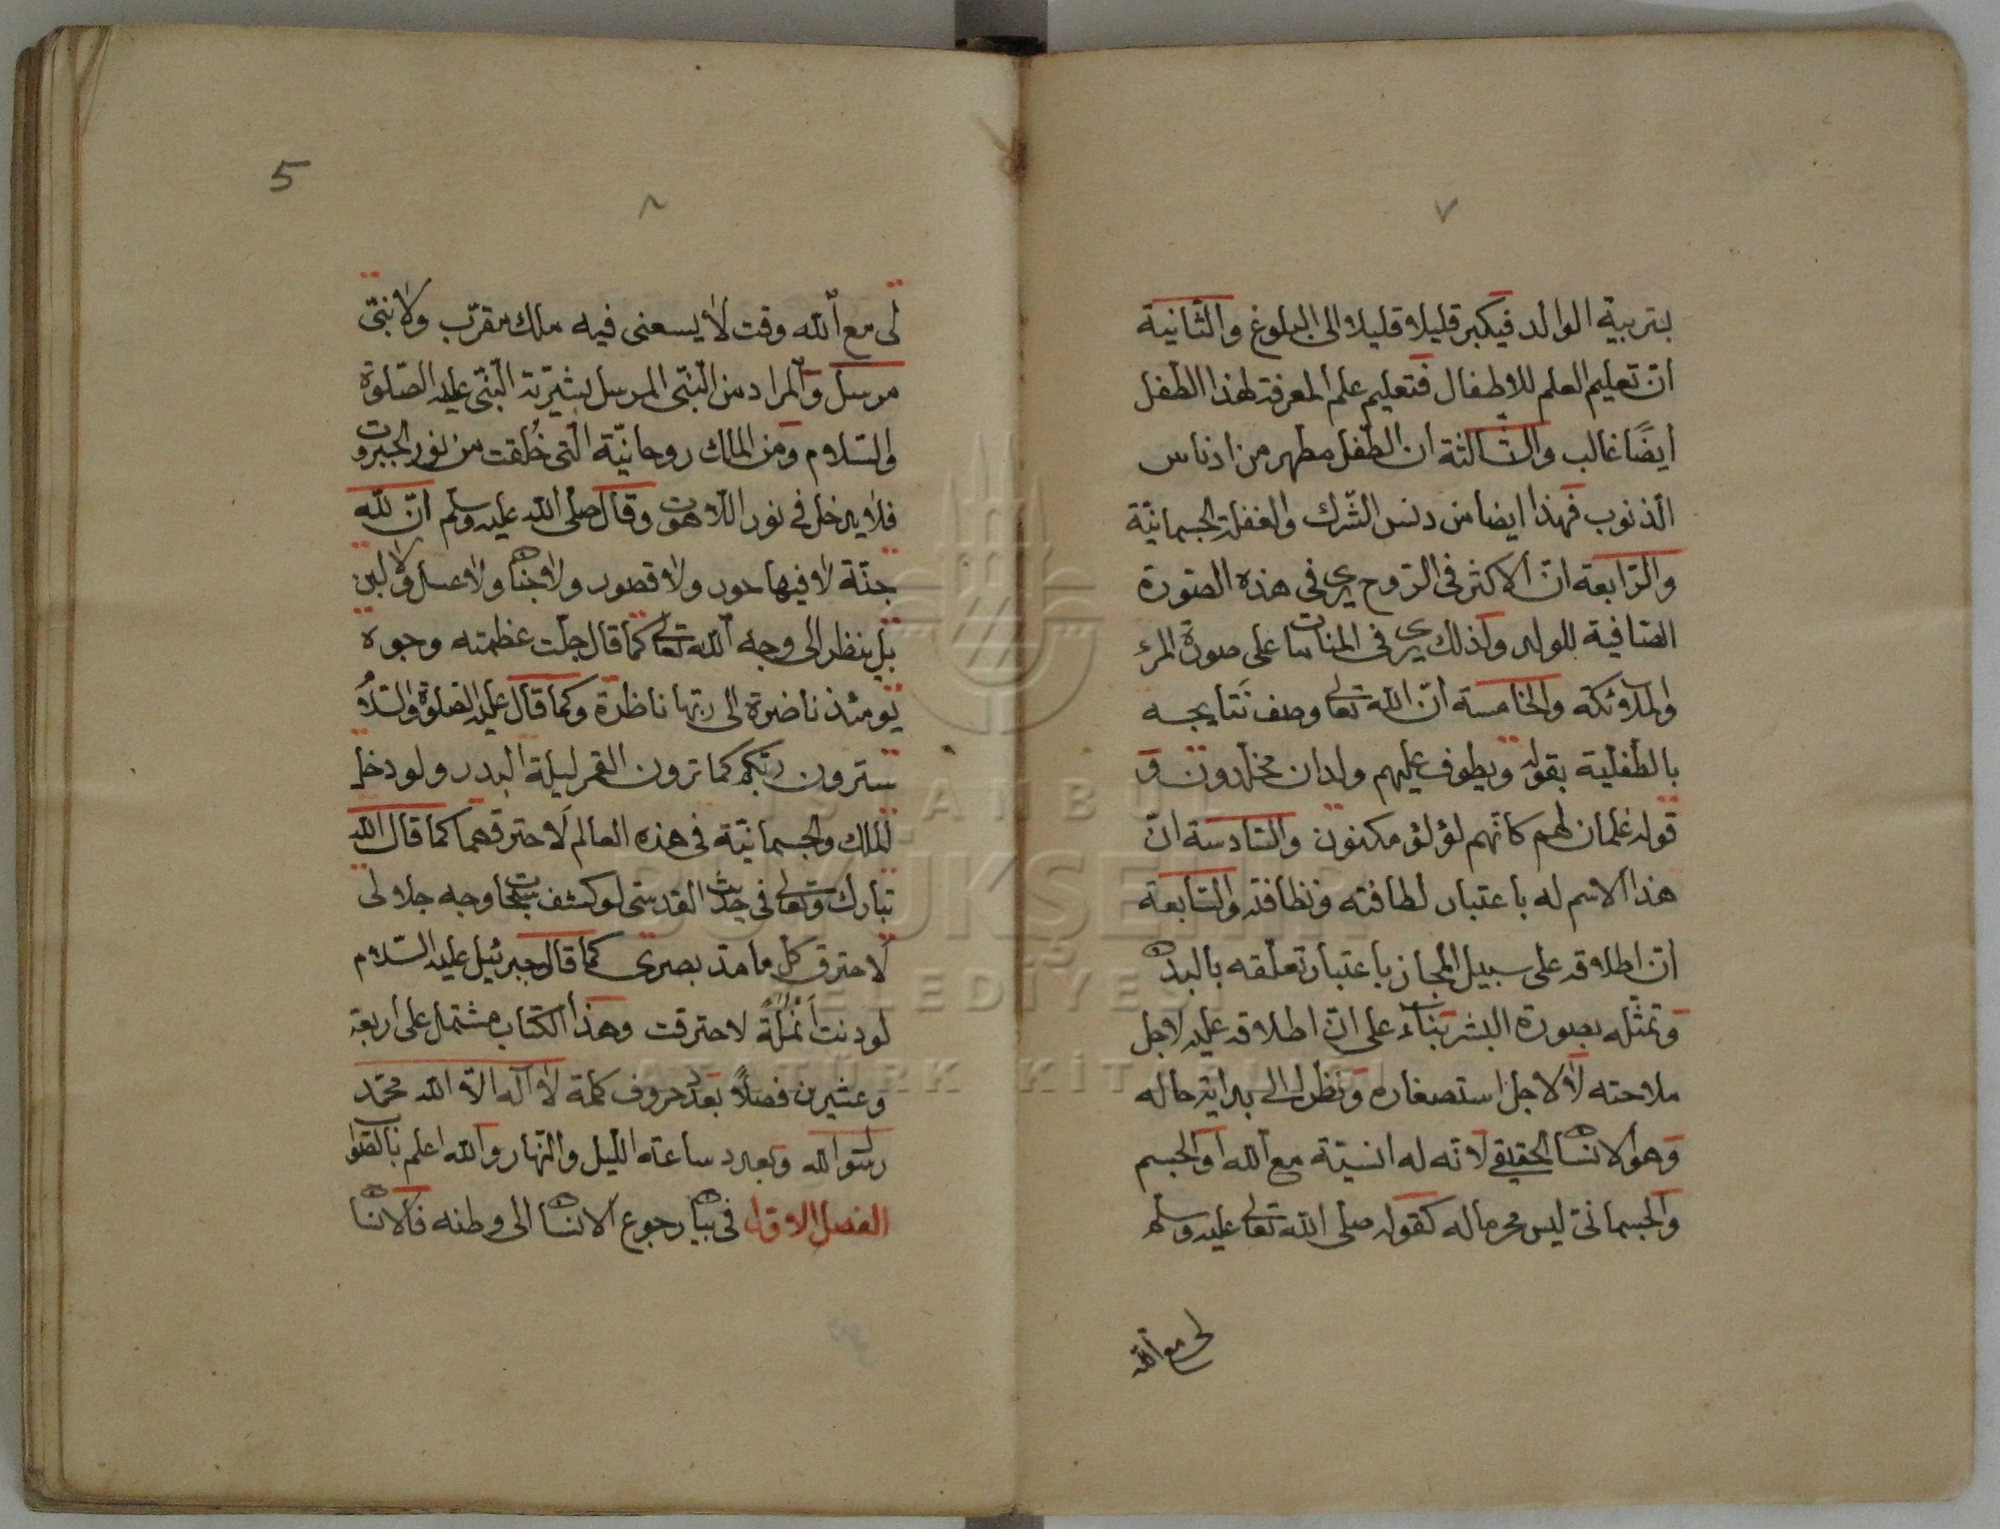 ٧
بتربية الوالد فيكبر قليلا قليلا الى البلوغ والثانية
انّ تعليم العلم للاطفال فتعليم علم المعرفة لهذا الطفل
ايضًا غالب والثالثة ان الطفل مطهر من ادناس
الذنوب فهذا ايضا من دنس الشّرك والغفلة الجسمانيّة
والرّابعة انّ الاكثر فى الرّوح يرى فى هذه الصّورة
الصّافية للولد وكذلك يرى فى المنامات على صورة المرء
والملآئكة والخامسة انّ الله تعالى وصف نتايجه
بالطّفلية بقوله ويطوف عليهم ولدان مخلّدون و
قوله غلمان لهم كانّهم لؤلؤ مكنون والسّادسة انّ
هذا الاسم له باعتبار لطافته ونظافته والسّابعة
انّ اطلاقه على سبيل المجاز باعتبار تعلّقه بالبدن
وتمثّله بصورة البشر بناء على انّ اطلاقه عليه لاجل
ملاحته لا لاجل استصغاره ونظرا الى بداية حاله
وهو الانسان الحقيقى لانّه له انسيّة مع الله او الجسم
والجسمانىّ ليس محرما له كقوله صلى الله تعالى عليه وسلّم
لى مع الله
5
٨
لى مع الله وقت لا يسعنى فيه ملك مقرّب ولا نبىّ
مرسل والمراد من النّبى المرسل بشيريّة النّبى عليه الصّلوة
والسّلام ومن الملك روحانيّة الّتى خُلقت من نور الجبروت
فلا يدخل فى نور اللّاهوت وقال صلّى الله عليه وسلّم انّ لله
جنّة لا فيها حور ولا قصور ولا جنان ولا عسل ولا لبن
بل ينظر الى وجه الله تعالى كما قال جلّت عظمته وجوه
يومئذ ناضرة الى ربّها ناظرة وكما قال عليه الصّلوة والسّلام
سترون ربّكم كما ترون القمر ليلة البدر ولو دخل
الملك والجسمانيّة فى هذه العالم لَاحترقهما كما قال الله
تبارك وتعالى فى حديث القدسى لو كشف سبحات وجه جلالى
لَاحترق كلّ ما مدّ بصرى كما قال جبرئيل عليه السّلام
لو دنت اَنْمُلَةً لاحترقت وهذا الكتاب مشتمل على اربعة
وعشرين فصلًا بعدد حروف كلمة لا آله الّا الله محمّد
رسول الله وبعدد ساعة اللّيل والنّهار والله اعلم بالصّواب
الفصل الاوّل فى بيان رجوع الانسان الى وطنه فالانسان